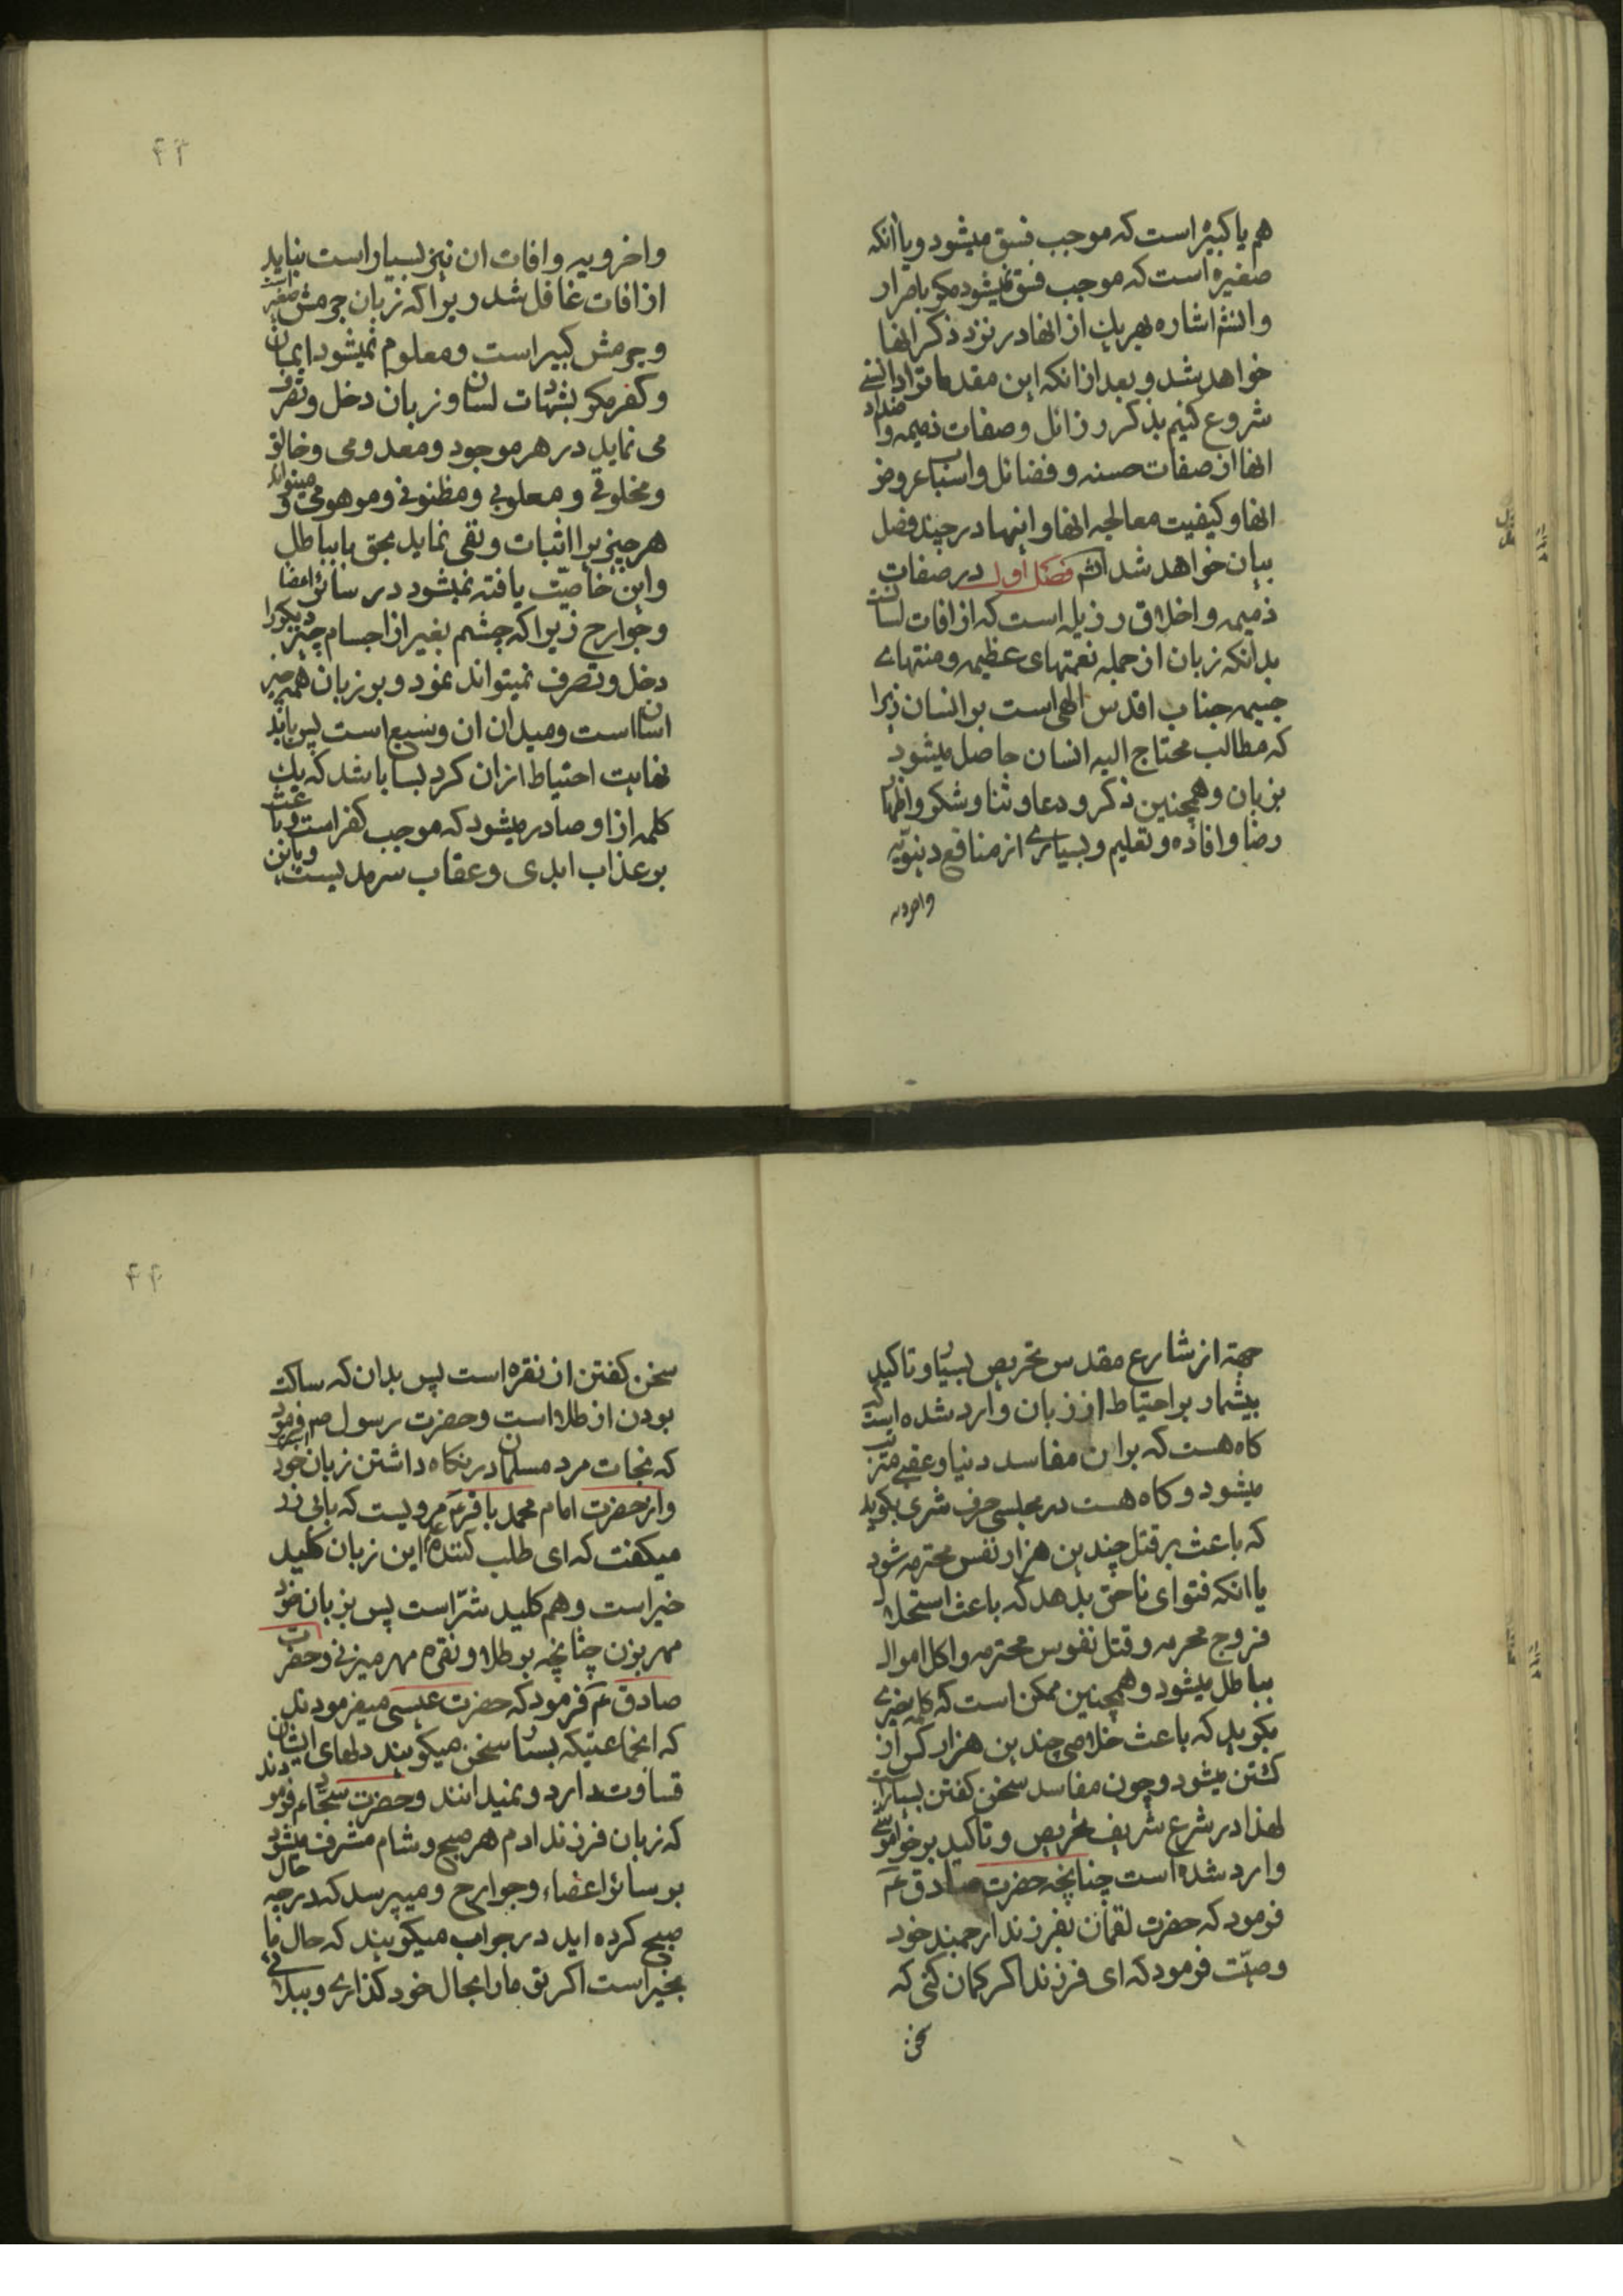 هم یا کبیره است که موجب فسق میشود و یا انکه
صغیره است که موجب فسق نمیشود مکر باصرار
وانشم اشاره بهریك از انها در نزد ذکر انها
خواهد شد و بعد از انکه این مقدمات را دانستی
شروع کنیم بذکر رزائل و صفات ذمیمه و اضداد
انها از صفات حسنه و فضائل و اسباب عروض
انها و کیفیت معالجه انها و اینها در چند فصل
بیان خواهد شد انشم فصل اول در صفات
ذمیمه و اخلاق رزیله است که از افات لسانست
بدانکه زبان از جمله نعمتهای عظیمه و منتهای
جسیمه جناب اقدس الهی است بر انسان زیرا
که مطالب محتاج الیه انسان حاصل میشود
بزبان و همچنین ذکر و دعا و ثنا و شکر و اظهار
رضا و افاده و تعلیم و بسیاری از منافع دنیویّه
واخرویه
۴۳
واخرویه و افات ان نیز بسیار است نباید
از افات غافل شد زیرا که زبان جرمش صغیر است
و جرمش کبیر است و معلوم نمیشود ایمان
و کفر مکر بشهادت لسان و زبان دخل و تصرف
می نماید در هر موجود و معدومی و خالق
و مخلوقی و معلومی و مظنونی و موهومی و میتواند
هر چیز برا اثبات و نفی نماید بحق یا بباطل
واین خاصیّت یافته نمیشود در سائر اعضا
و جوارح زیرا که چشم بغیر از اجسام چیز دیکر را
دخل و تصرف نمیتواند نمود و بر زبان همه چیز
اسان است و میدان ان وسیع است پس باید
نهایت احتیاط از ان کرد بسا باشد که یك
کلمه از او صادر میشود که موجب کفر است و باعث
بر عذاب ابدی و عقاب سرمدیست و باین
جهة از شارع مقدس تحریص بسیار و تاکید
بیشمار بر احتیاط از زبان وارد شده است که
کاه هست که بر ان مفاسد دنیا و عقبی مترتب
میشود و کاه هست در مجلسی حرف شری بکوید
که باعث بر قتل چندین هزار نفس محترمه شود
یا انکه فتوای ناحق بدهد که باعث استحلال
فروج محرمه و قتل نفوس محترمه و اکل اموال
بباطل میشود و همچنین ممکن است که کلمه خیری
بکوید که باعث خلاصی چندین هزار کس از
کشتن میشود و چون مفاسد سخن کفتن بسیار است
لهذا در شرع شریف تحریص و تاکید بر خواموشی
وارد شده است چنانچه حضرت صادق ع
فرمود که حضرت لقمان بفرزند ارجمند خود
وصیّت فرمود که ای فرزند اکر کمان کنی که
سخن
۴۴
سخن کفتن از نقره است پس بدان که ساکت
بودن از طلا است و حضرت رسول ص فرمود
که نجات مرد مسلمان در نکاه داشتن زبان خود است
و از حضرت امام محمد باقر ع مرویست که بابی ذر
میکفت که ای طلب کننده این زبان کلید
خیر است و هم کلید شرّ است پس بزبان خود
مهر بزن چنانچه بر طلا و نقره مهر میزنی و حضرت
صادق ع فرمود که حضرت عیسی میفرمودند
که انجماعتیکه بسیار سخن میکویند دلهای ایشان
قساوت دارد و نمیدانند و حضرت سجاد ع فرمودند
که زبان فرزند ادم هر صبح و شام مشرف میشود
بر سائر اعضاء و جوارح و میپرسد که در چه حال
صبح کرده اید در جواب میکویند که حال ما
بخیر است اکر تو ما را بحال خود کذاری و ببلائی